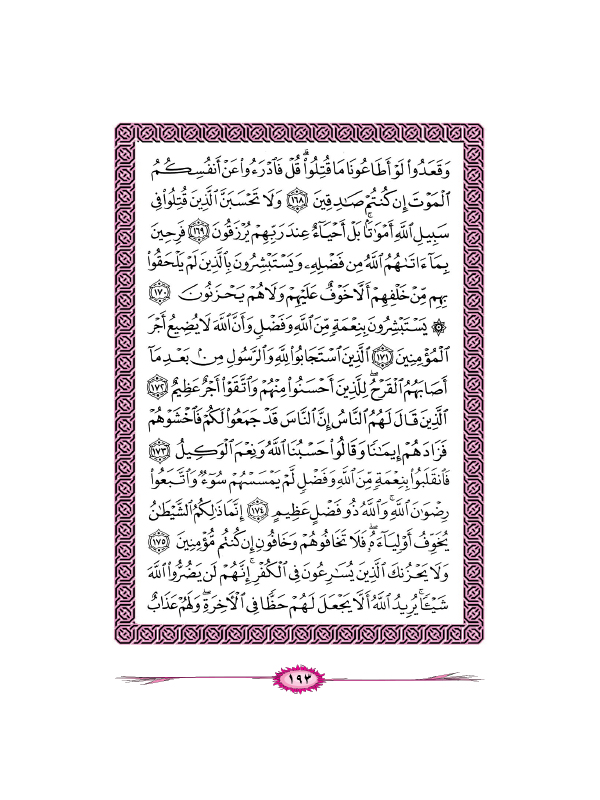 وَقَعَدُوا۟ لَوْ أَطَاعُونَا مَا قُتِلُوا۟ ۗ قُلْ فَٱدْرَءُوا۟ عَنْ أَنفُسِكُمُ
ٱلْمَوْتَ إِن كُنتُمْ صَـٰدِقِينَ ١٦٨ وَلَا تَحْسَبَنَّ ٱلَّذِينَ قُتِلُوا۟ فِى
سَبِيلِ ٱللَّهِ أَمْوَٰتًۢا ۚ بَلْ أَحْيَآءٌ عِندَ رَبِّهِمْ يُرْزَقُونَ ١٦٩ فَرِحِينَ
بِمَآ ءَاتَىٰهُمُ ٱللَّهُ مِن فَضْلِهِۦ وَيَسْتَبْشِرُونَ بِٱلَّذِينَ لَمْ يَلْحَقُوا۟
بِهِم مِّنْ خَلْفِهِمْ أَلَّا خَوْفٌ عَلَيْهِمْ وَلَا هُمْ يَحْزَنُونَ ١٧٠
۞ يَسْتَبْشِرُونَ بِنِعْمَةٍ مِّنَ ٱللَّهِ وَفَضْلٍ وَأَنَّ ٱللَّهَ لَا يُضِيعُ أَجْرَ
ٱلْمُؤْمِنِينَ ١٧١ ٱلَّذِينَ ٱسْتَجَابُوا۟ لِلَّهِ وَٱلرَّسُولِ مِنۢ بَعْدِ مَآ
أَصَابَهُمُ ٱلْقَرْحُ ۚ لِلَّذِينَ أَحْسَنُوا۟ مِنْهُمْ وَٱتَّقَوْا۟ أَجْرٌ عَظِيمٌ ١٧٢
ٱلَّذِينَ قَالَ لَهُمُ ٱلنَّاسُ إِنَّ ٱلنَّاسَ قَدْ جَمَعُوا۟ لَكُمْ فَٱخْشَوْهُمْ
فَزَادَهُمْ إِيمَـٰنًا وَقَالُوا۟ حَسْبُنَا ٱللَّهُ وَنِعْمَ ٱلْوَكِيلُ ١٧٣
فَٱنقَلَبُوا۟ بِنِعْمَةٍ مِّنَ ٱللَّهِ وَفَضْلٍ لَّمْ يَمْسَسْهُمْ سُوٓءٌ وَٱتَّبَعُوا۟
رِضْوَٰنَ ٱللَّهِ ۗ وَٱللَّهُ ذُو فَضْلٍ عَظِيمٍ ١٧٤ إِنَّمَا ذَٰلِكُمُ ٱلشَّيْطَـٰنُ
يُخَوِّفُ أَوْلِيَآءَهُۥ ۖ فَلَا تَخَافُوهُمْ وَخَافُونِ إِن كُنتُم مُّؤْمِنِينَ ١٧٥
وَلَا يَحْزُنكَ ٱلَّذِينَ يُسَـٰرِعُونَ فِى ٱلْكُفْرِ ۚ إِنَّهُمْ لَن يَضُرُّوا۟ ٱللَّهَ
شَيْـًٔا ۗ يُرِيدُ ٱللَّهُ أَلَّا يَجْعَلَ لَهُمْ حَظًّا فِى ٱلْـَٔاخِرَةِ ۖ وَلَهُمْ عَذَابٌ
١٩٣